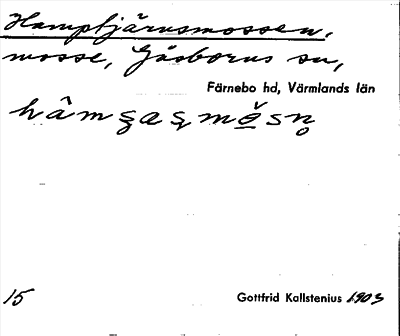 Hamptjärnsmossen,
mosse, Gåsborns sn,
Färnebo hd, Värmlands län
15
Gottfrid Kallstenius 1903